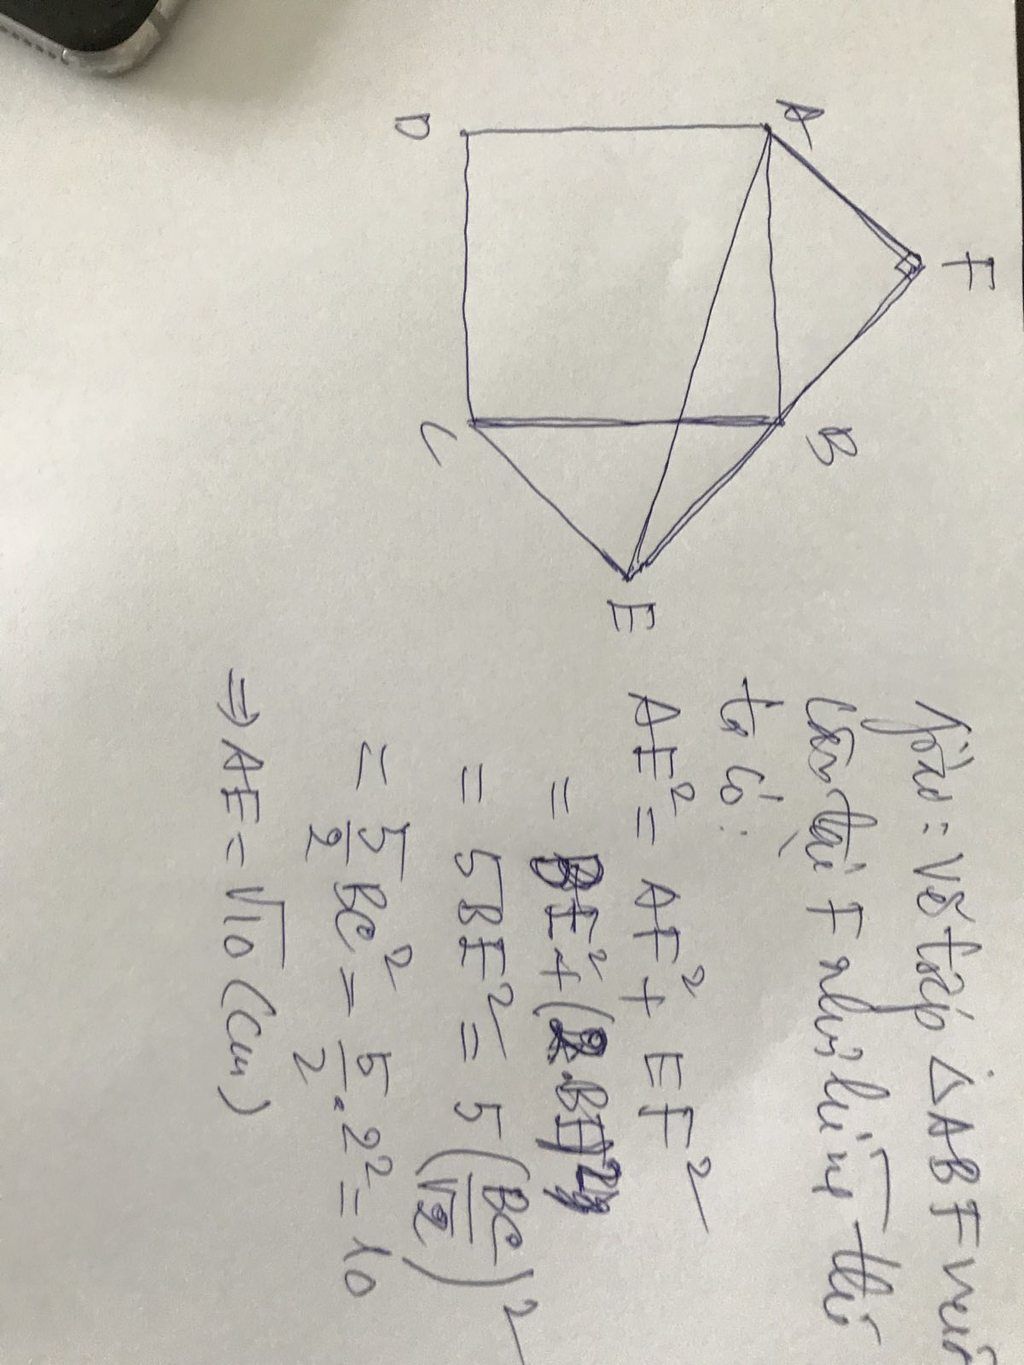 A
F
B
D
C
E
Giải: Vẽ tiếp △ABF vuông
cân tại F như hình thì
ta có:
AE² = AF² + EF²
= BE² + (2.BE)²
= 5BE² = 5(BC/√2)²
= 5/2 BC² = 5/2 . 2² = 10
⇒ AE = √10 (cm)